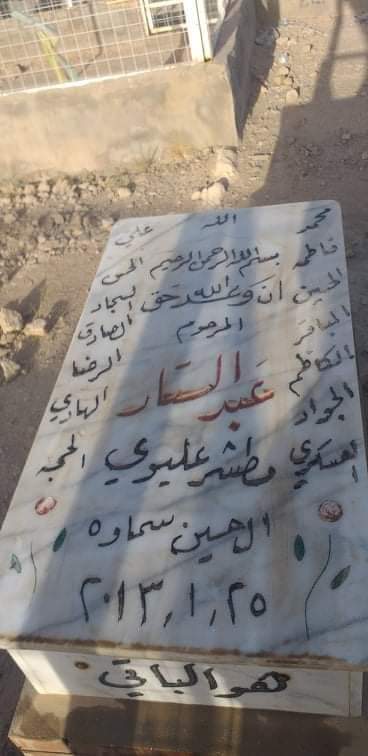 محمد الله علي
فاطمه بسم الله الرحمن الرحيم الحسن
الحسين ان وعد الله حق لسجاد
الباقر المرحوم الصادق
الكاظم الرضا
الجواد عبد الستار الهادي
العسكري مطشر عليوي الحجه
ال حسين سماوه
٢٠١٣,١,٢٥
هو الباقي